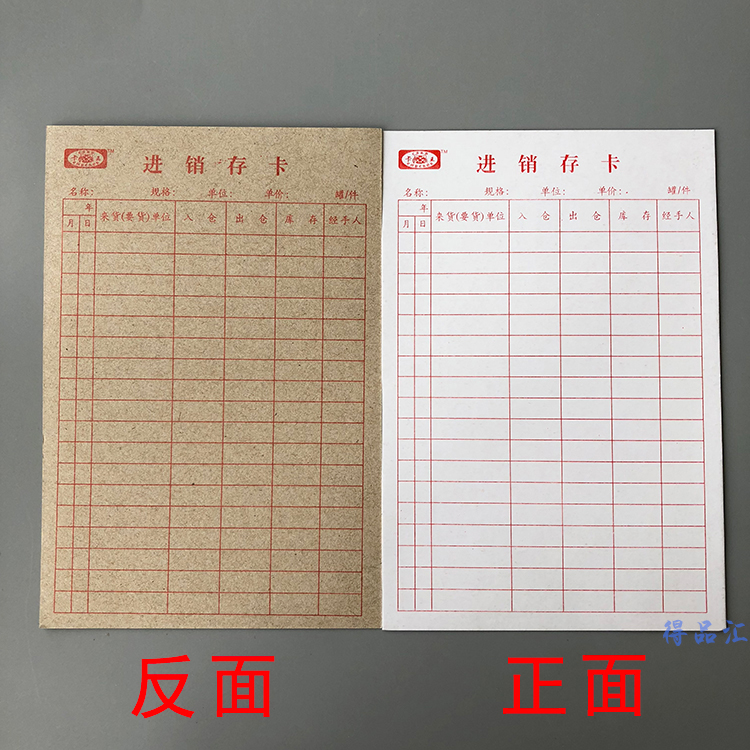 进销存卡
名称： 规格： 单位： 单价： 罐/件
年
月 日 来货(要货)单位 入仓 出仓 库存 经手人
进销存卡
名称： 规格： 单位： 单价： 罐/件
年
月 日 来货(要货)单位 入仓 出仓 库存 经手人
得品汇
反面
正面